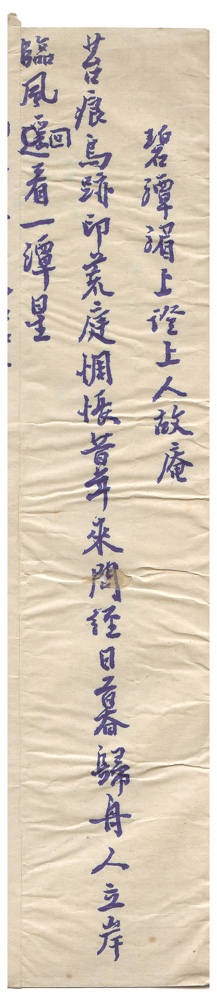 碧潭湄上證上人故庵
苔痕鳥跡印荒庭惆悵昔年來問經日暮歸舟人立岸
臨風回看一潭星